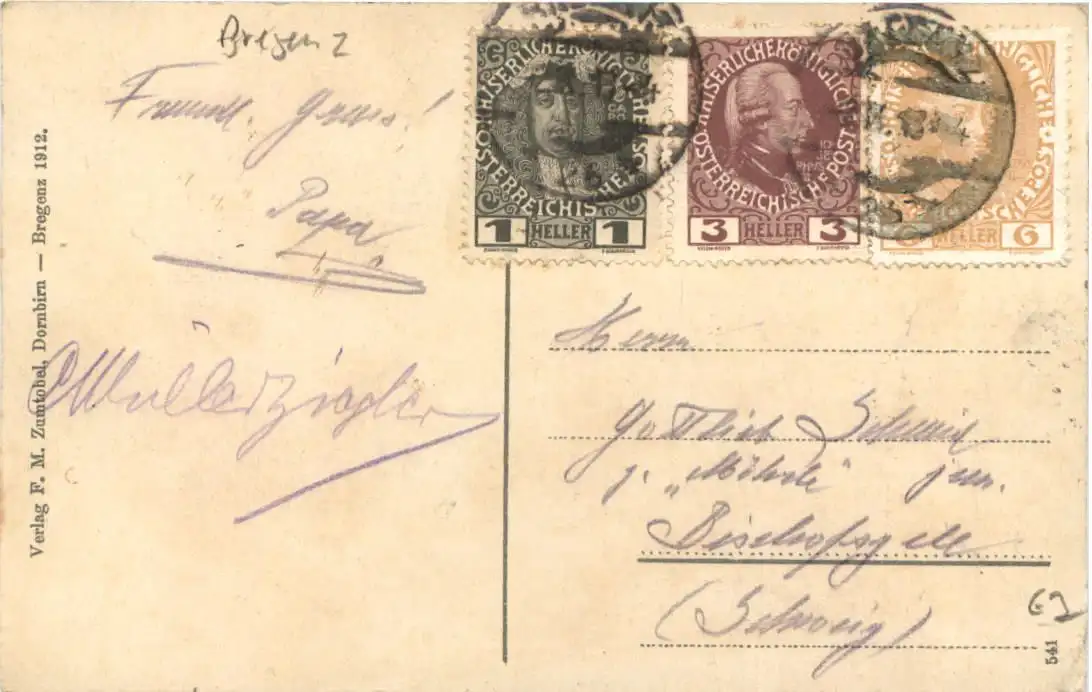 Bregenz
Freundl. Gruss!
Papa
Müller Ziegler
Verlag F. M. Zumtobel, Dornbirn — Bregenz 1912.
KAISERLICHE KÖNIGLICHE ÖSTERREICHISCHE POST
1 HELLER 1
KAISERLICHE KÖNIGLICHE ÖSTERREICHISCHE POST
3 HELLER 3
6 HELLER 6
Herrn
Gottlieb Schmid
z. „Möhrli" jun.
Bischofszell
(Schweiz)
541